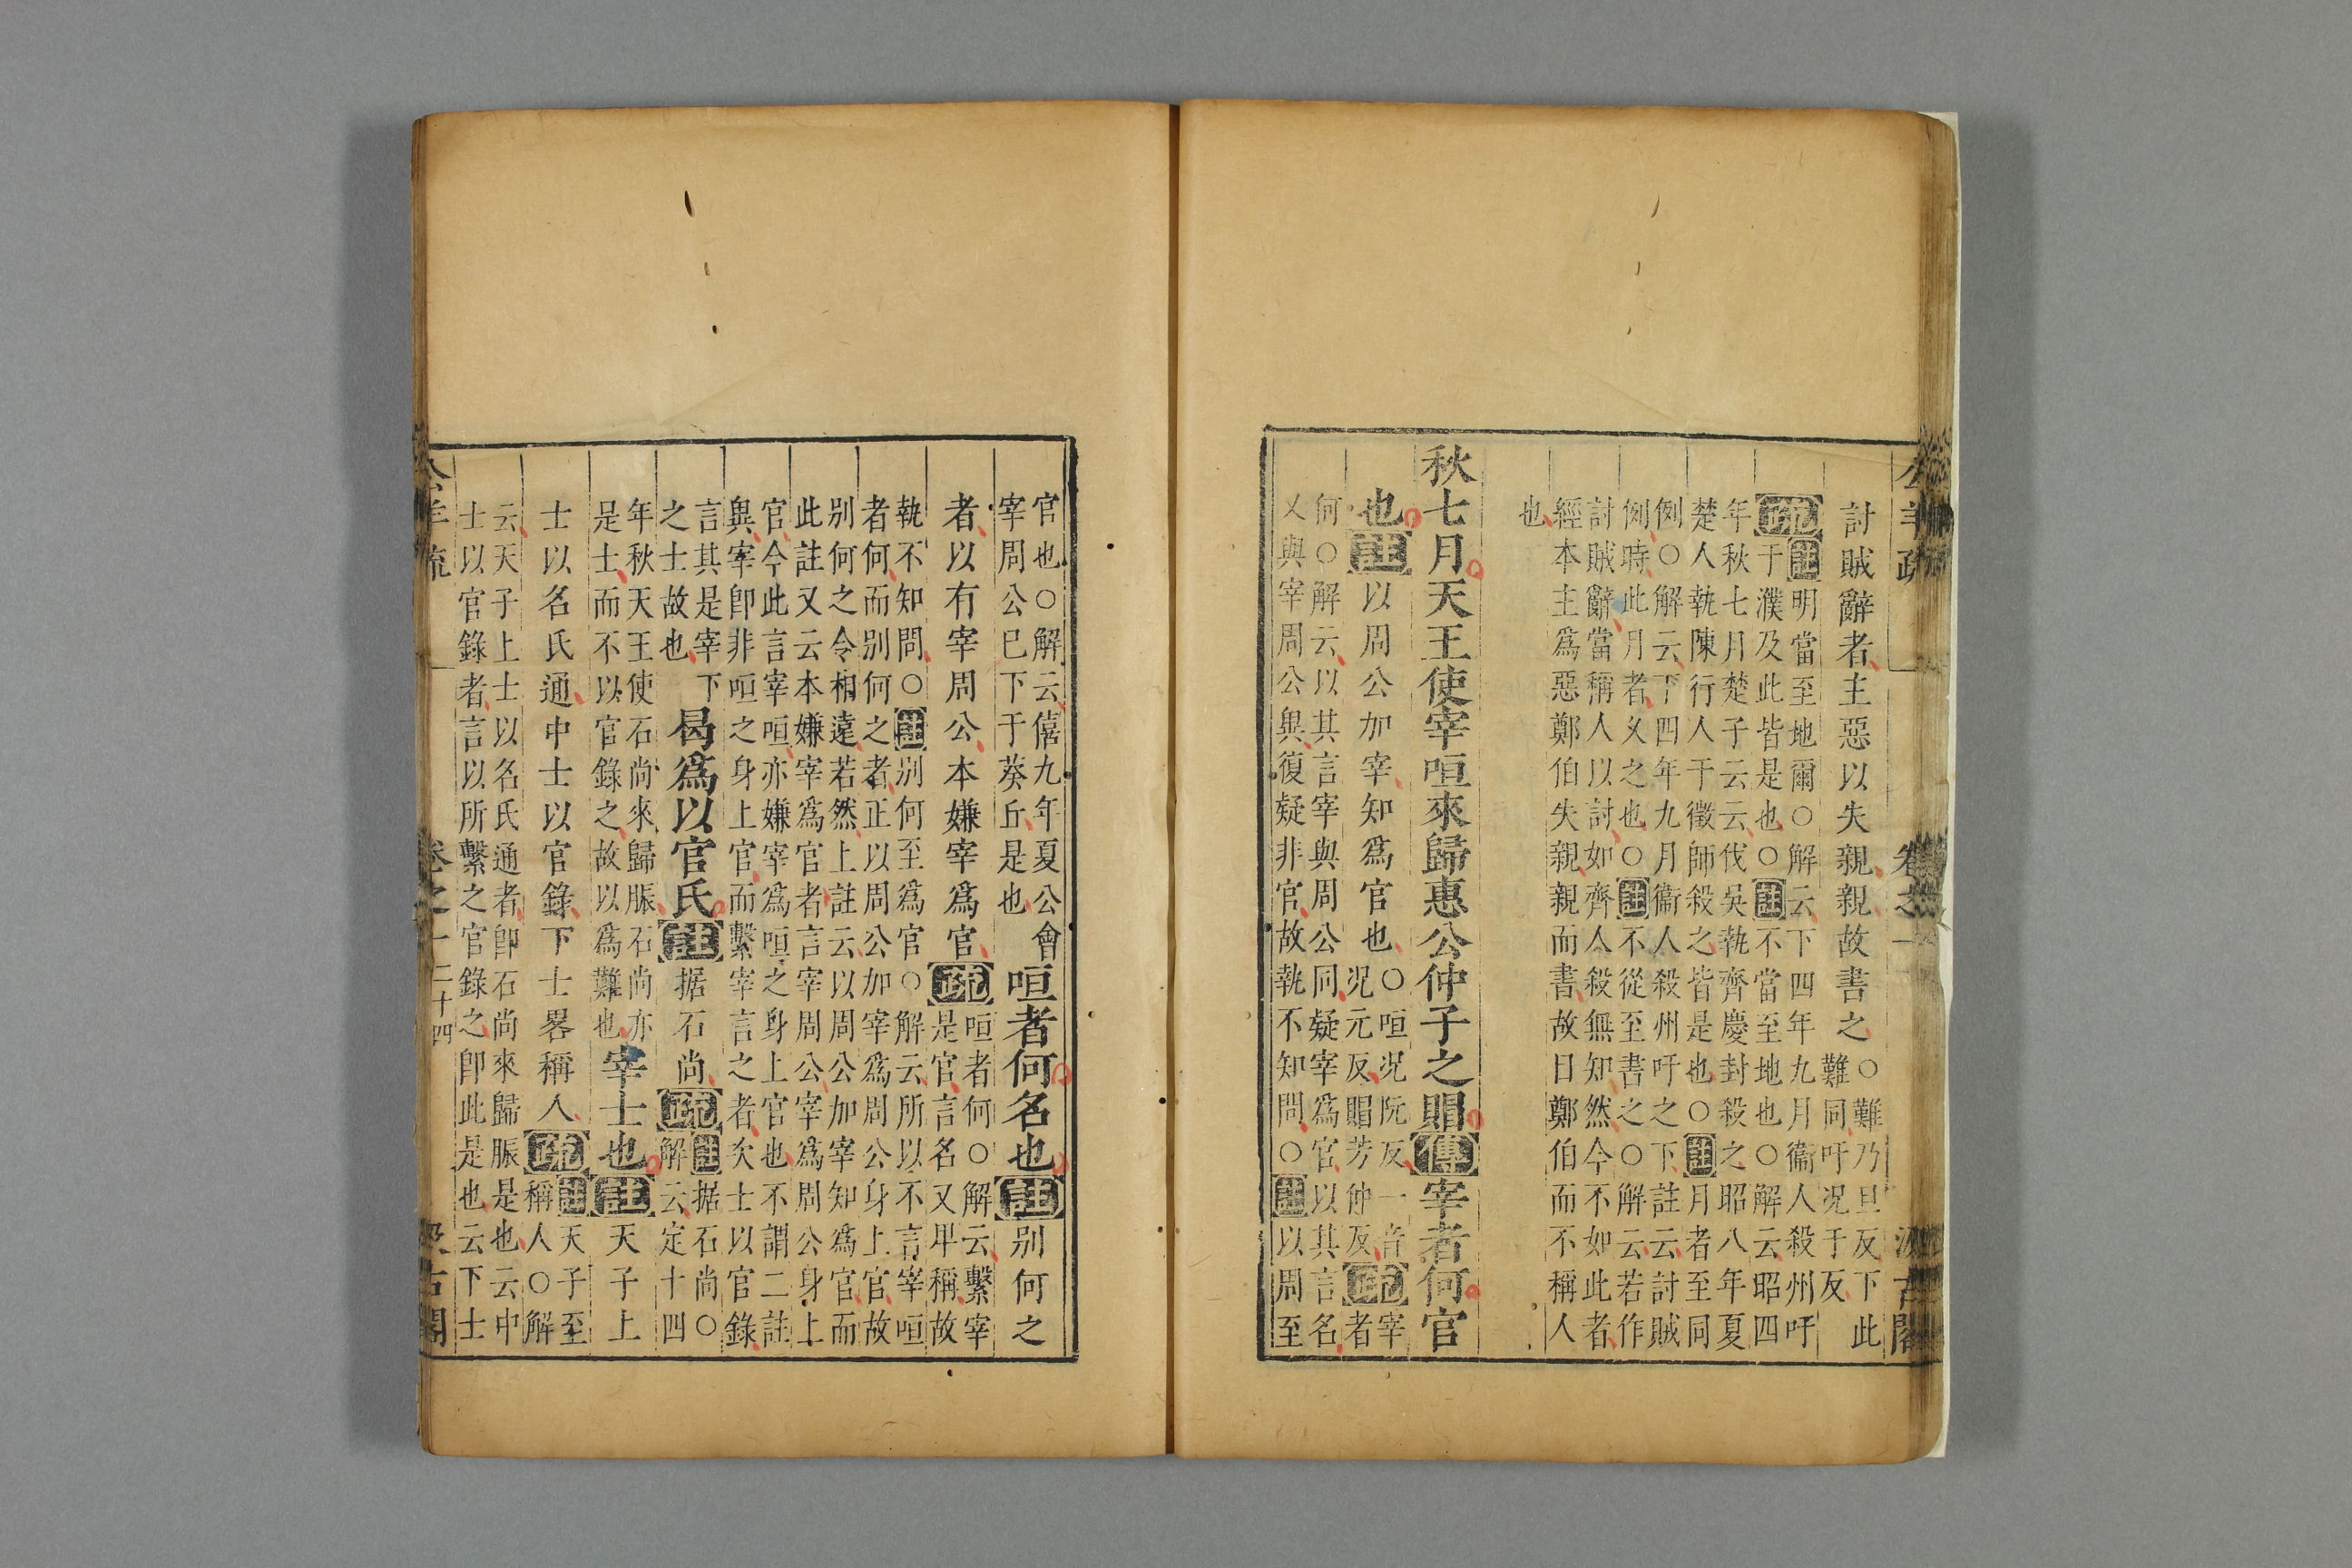 公羊疏 卷之一 汲古閣
討賊辭者主惡以失親親故書之
○難乃旦反下此
難同吁況于反
疏
註明當至地爾○解云下四年九月衞人殺州吁
于濮及此皆是也○註不當至地也○解云昭四
年秋七月楚子云云伐吳執齊慶封殺之昭八年夏
楚人執陳行人于徵師殺之皆是也○註月者至同
例○解云下四年九月衞人殺州吁之下註云討賊
例時此月者乆之也○註不從至書之○解云若作
討賊辭當稱人以討如齊人殺無知然今不如此者
經本主爲惡鄭伯失親親而書故曰鄭伯而不稱人
也
秋七月天王使宰咺來歸惠公仲子之賵傳宰者何官
也註以周公加宰知爲官也
○咺况阮反一音
况元反賵芳仲反
疏
宰
者
何○解云以其言宰與周公同疑宰爲官以其言名
乂與宰周公與復疑非官故執不知問○註以周至
官也○解云僖九年夏公會
宰周公已下于葵丘是也
咺者何名也註別何之
者以有宰周公本嫌宰爲官疏
咺者何○解云繫宰
是官言名又卑稱故
執不知問○註別何至爲官○解云所以不言宰咺
者何而別何之者正以周公加宰爲周公身上官故
別何之令相違若然上註云以周公加宰知爲官而
此註又云本嫌宰爲官者言宰周公宰爲周公身上
官今此言宰咺亦嫌宰爲咺之身上官也不謂二註
異宰卽非咺之身上官而繫宰言之者次士以官錄
言其是宰下
之士故也
曷爲以官氏註据石尚疏
註据石尚○
解云定十四
年秋天王使石尚來歸脤石尚亦
是士而不以官錄之故以爲難也
宰士也註天子上
士以名氏通中士以官錄下士畧稱人疏
註天子至
稱人○解
云天子上士以名氏通者卽石尚來歸脤是也云中
士以官錄者言以所繫之官錄之卽此是也云下士
公羊疏 卷之一 二十四 汲古閣